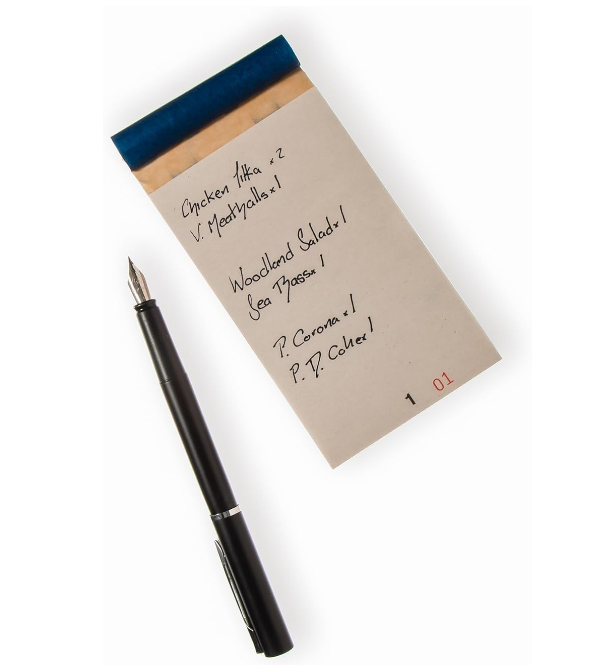 Chicken Tikka x2
V. Meatballs x1
Woodland Salad x1
Sea Bass x1
P. Corona x1
P. D. Coke x1
1 01